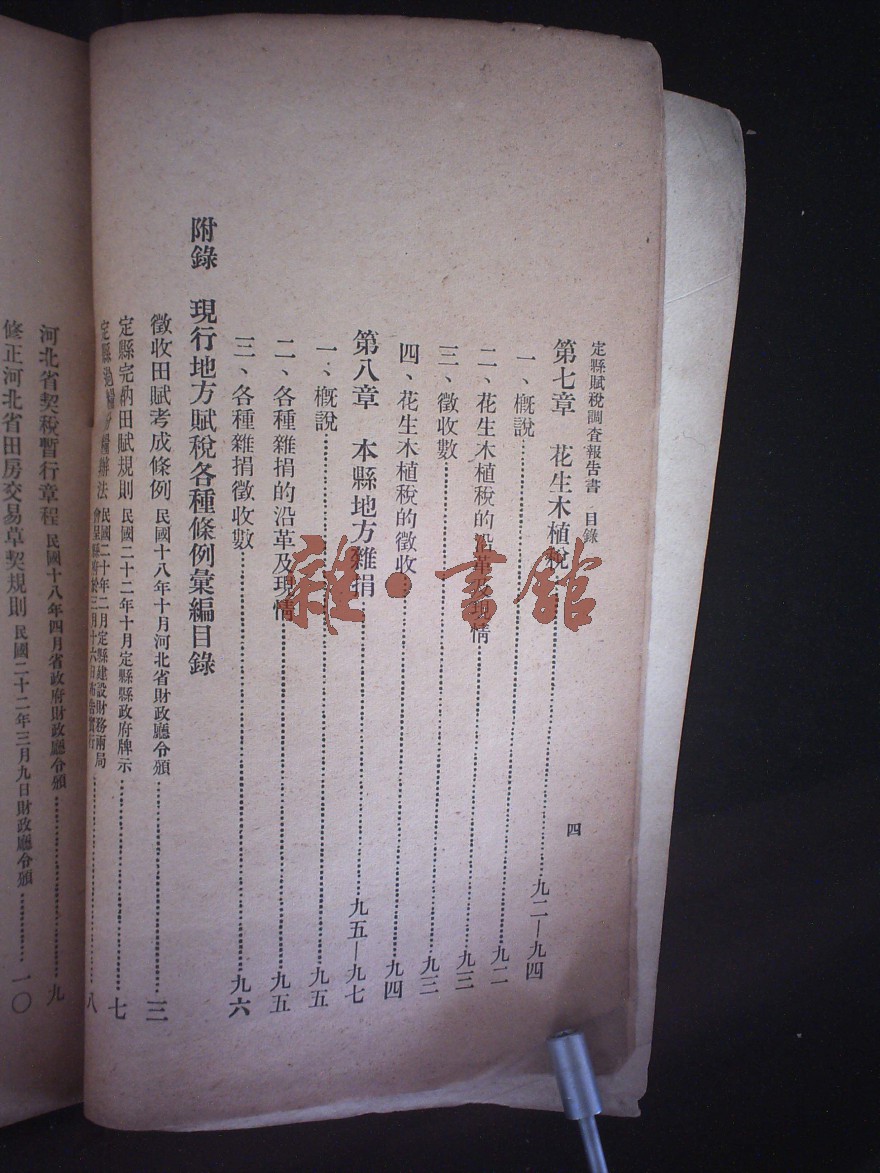 定縣賦稅調査報告書 目錄
四
第七章 花生木植稅……九二—九四
一、概說……九二
二、花生木植稅的沿革及現情……九三
三、徵收數……九三
四、花生木植稅的徵收……九四
第八章 本縣地方雜捐……九五—九七
一、概說……九五
二、各種雜捐的沿革及現情……九五
三、各種雜捐徵收數……九六
附錄 現行地方賦稅各種條例彙編目錄
徵收田賦考成條例 民國十八年十月河北省財政廳令頒……三
定縣完納田賦規則 民國二十二年十月定縣縣政府牌示……七
定縣 辦法 民國二十年二月定縣建設財務兩局……八
河北省契稅暫行章程 民國十八年四月省政府財政廳令頒……九
修正河北省田房交易草契規則 民國二十二年三月九日財政廳令頒……一〇
雜·書館